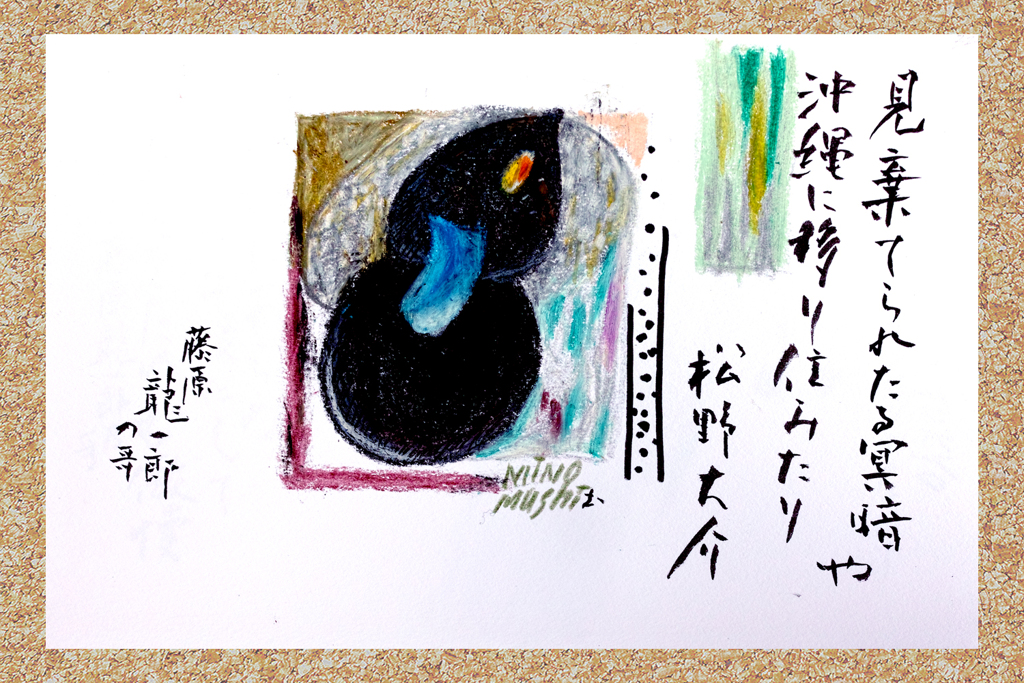 見棄てられたる冥暗や
沖縄に移り住みたり
松野大介
MiNO
Mushi
藤原
龍一郎
の哥